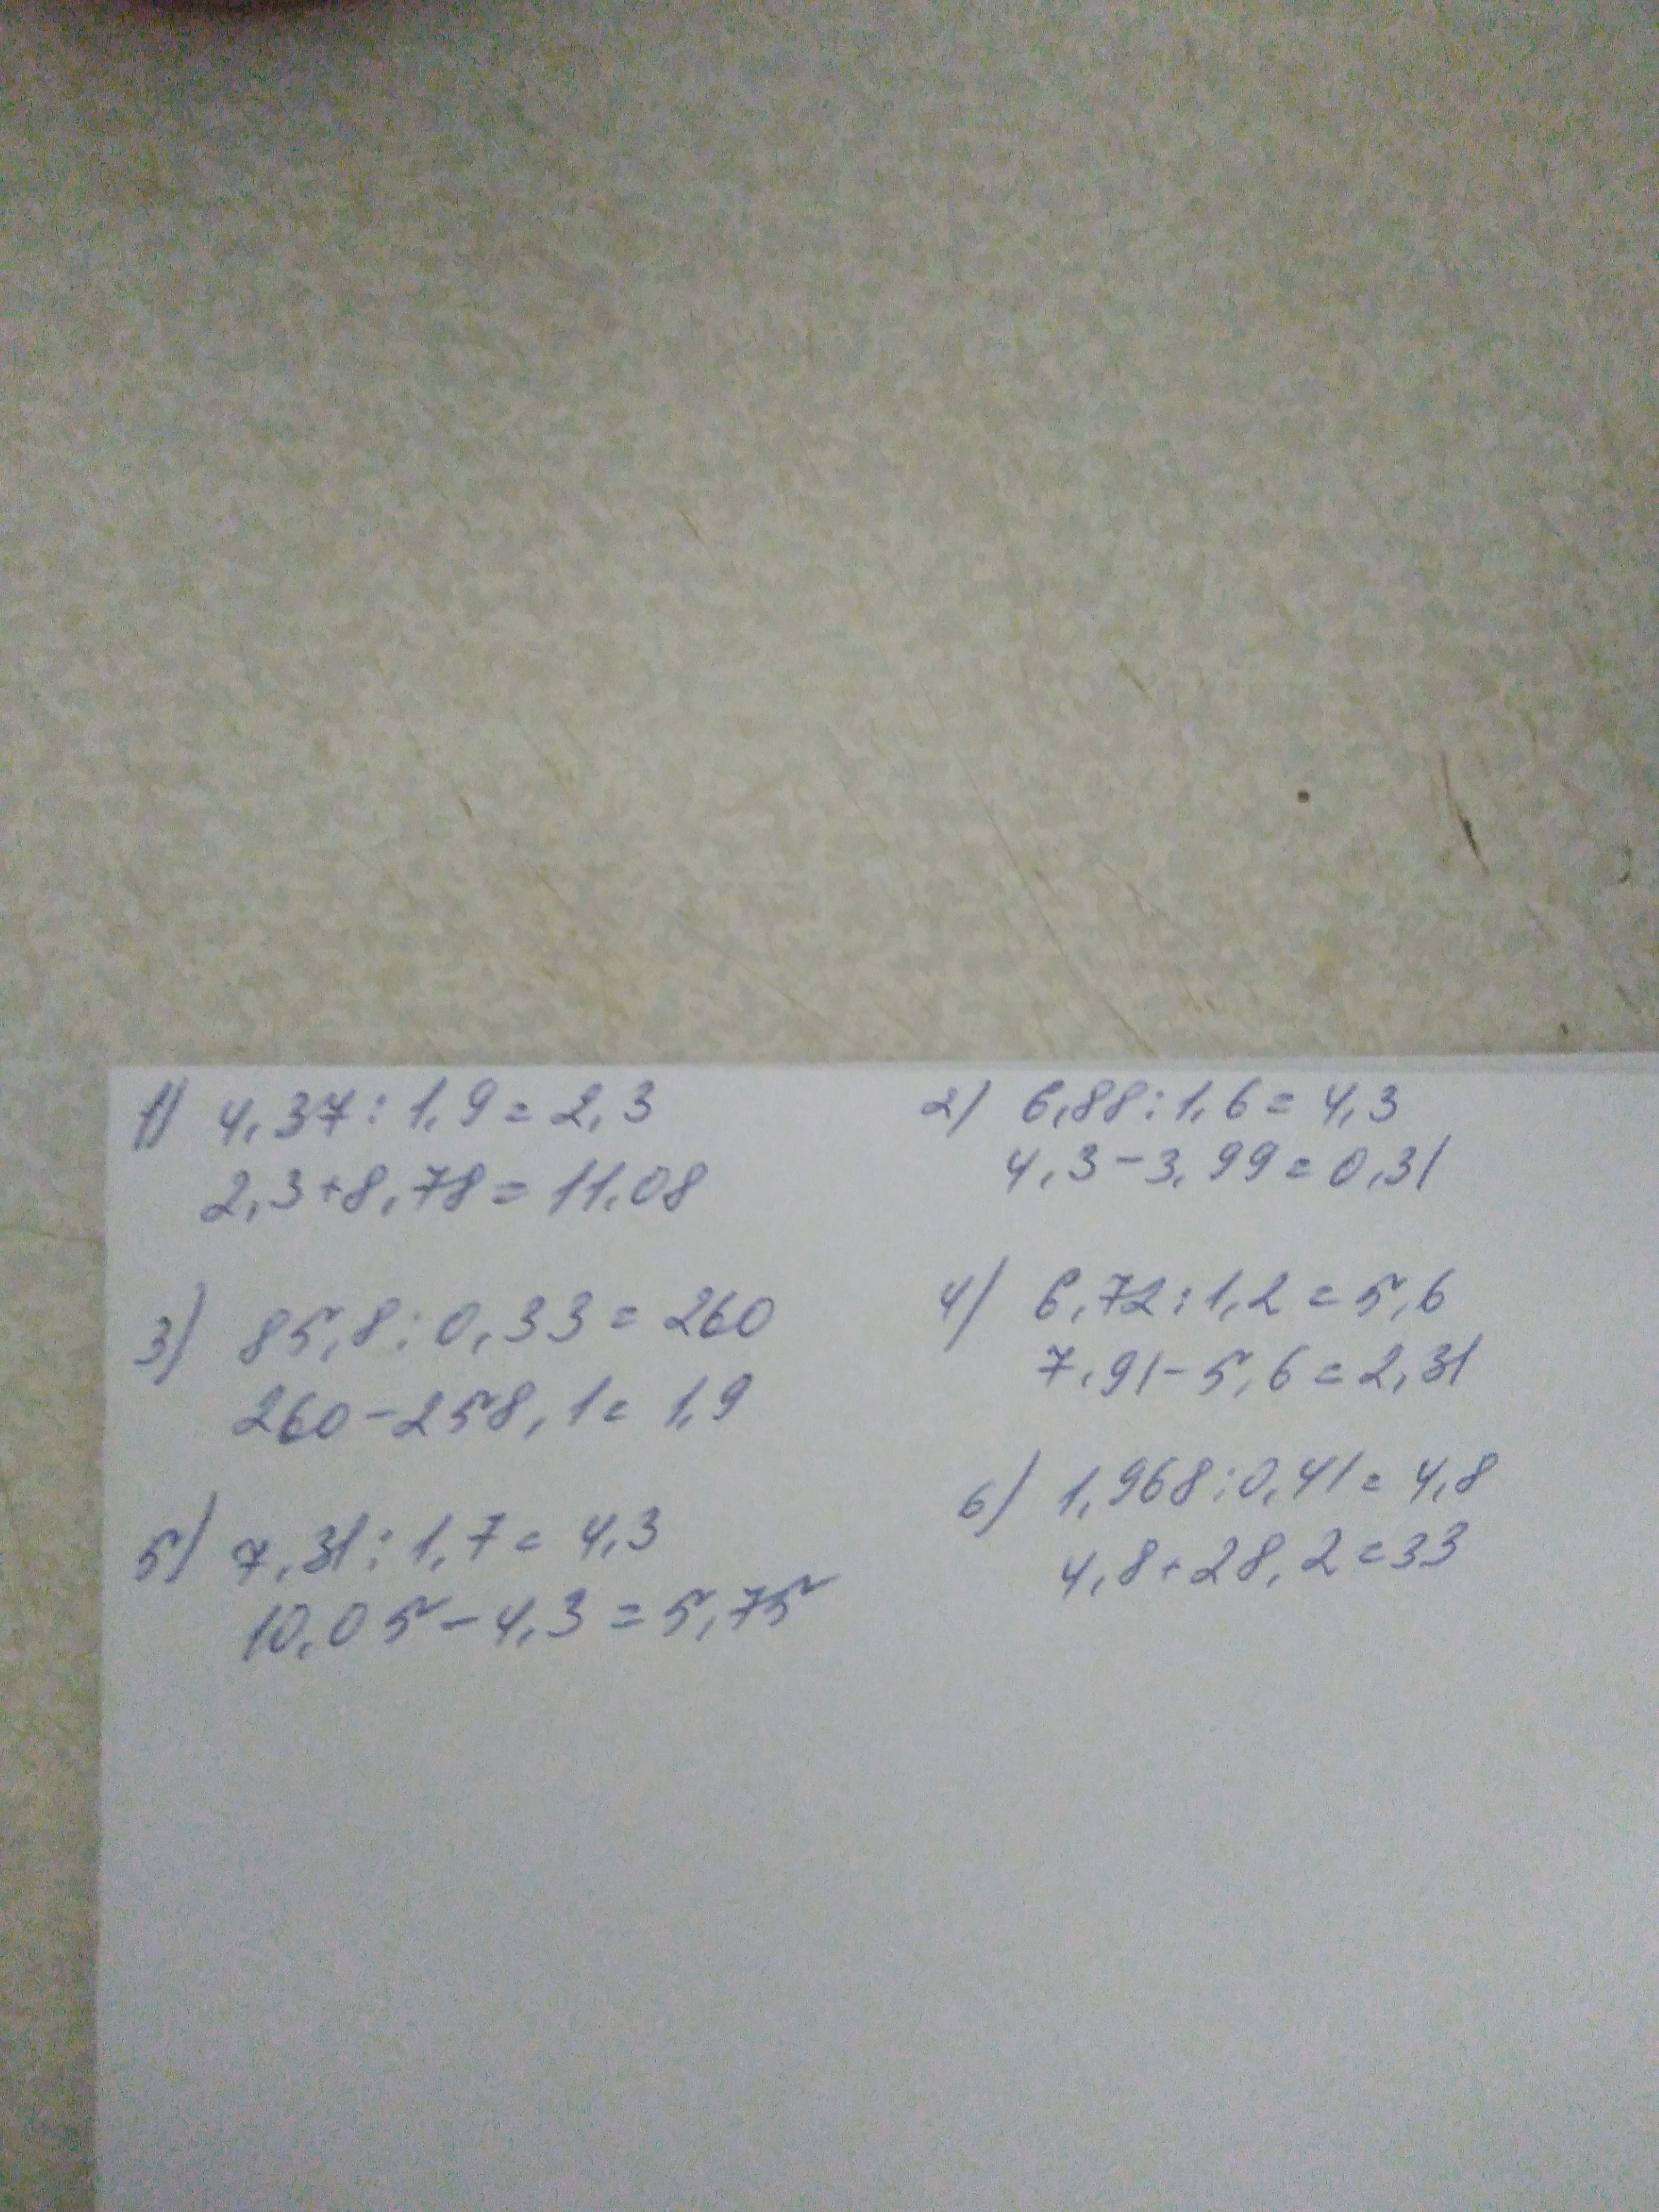 1) 4,37:1,9=2,3
2,3+8,78=11,08
2) 6,88:1,6=4,3
4,3-3,99=0,31
3) 85,8:0,33=260
260-258,1=1,9
4) 6,72:1,2=5,6
7,91-5,6=2,31
5) 7,31:1,7=4,3
10,05-4,3=5,75
6) 1,968:0,41=4,8
4,8+28,2=33